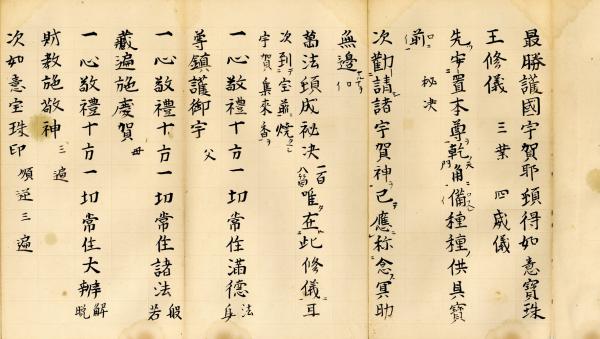 最勝護國宇賀耶頓得如意寶珠
王修儀 三業 四威儀
先安置本尊乾角備種種供具寶
前 秘决
次勸請諸宇賀神已應称念冥助
無邊
萬法頓成秘决 一百八篇 唯在此修儀耳
次到宝前燒
宇賀集來香
一心敬禮十方一切常住滿德法身
尊鎮護御宇 父
一心敬禮十方一切常住諸法般若
藏遍施慶賀 母
一心敬禮十方一切常住大辨解脱
財教施敬神 三遍
次如意宝珠印 順逆三遍